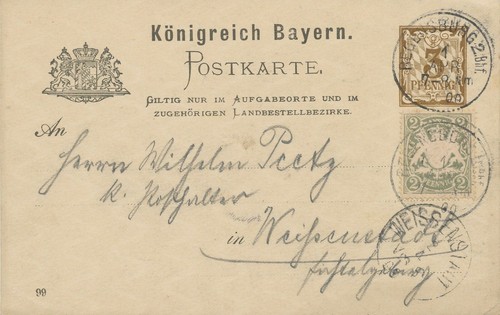 Königreich Bayern.
POSTKARTE.
GILTIG NUR IM AUFGABEORTE UND IM
ZUGEHÖRIGEN LANDBESTELLBEZIRKE.
REGENSBURG 2. Bhf.
1
00
3
PFENNIG
2 2
An
Herrn Wilhelm Peetz
k. Posthalter
in Weißenstadt
Fichtelgebirg
WEISSENSTADT
99